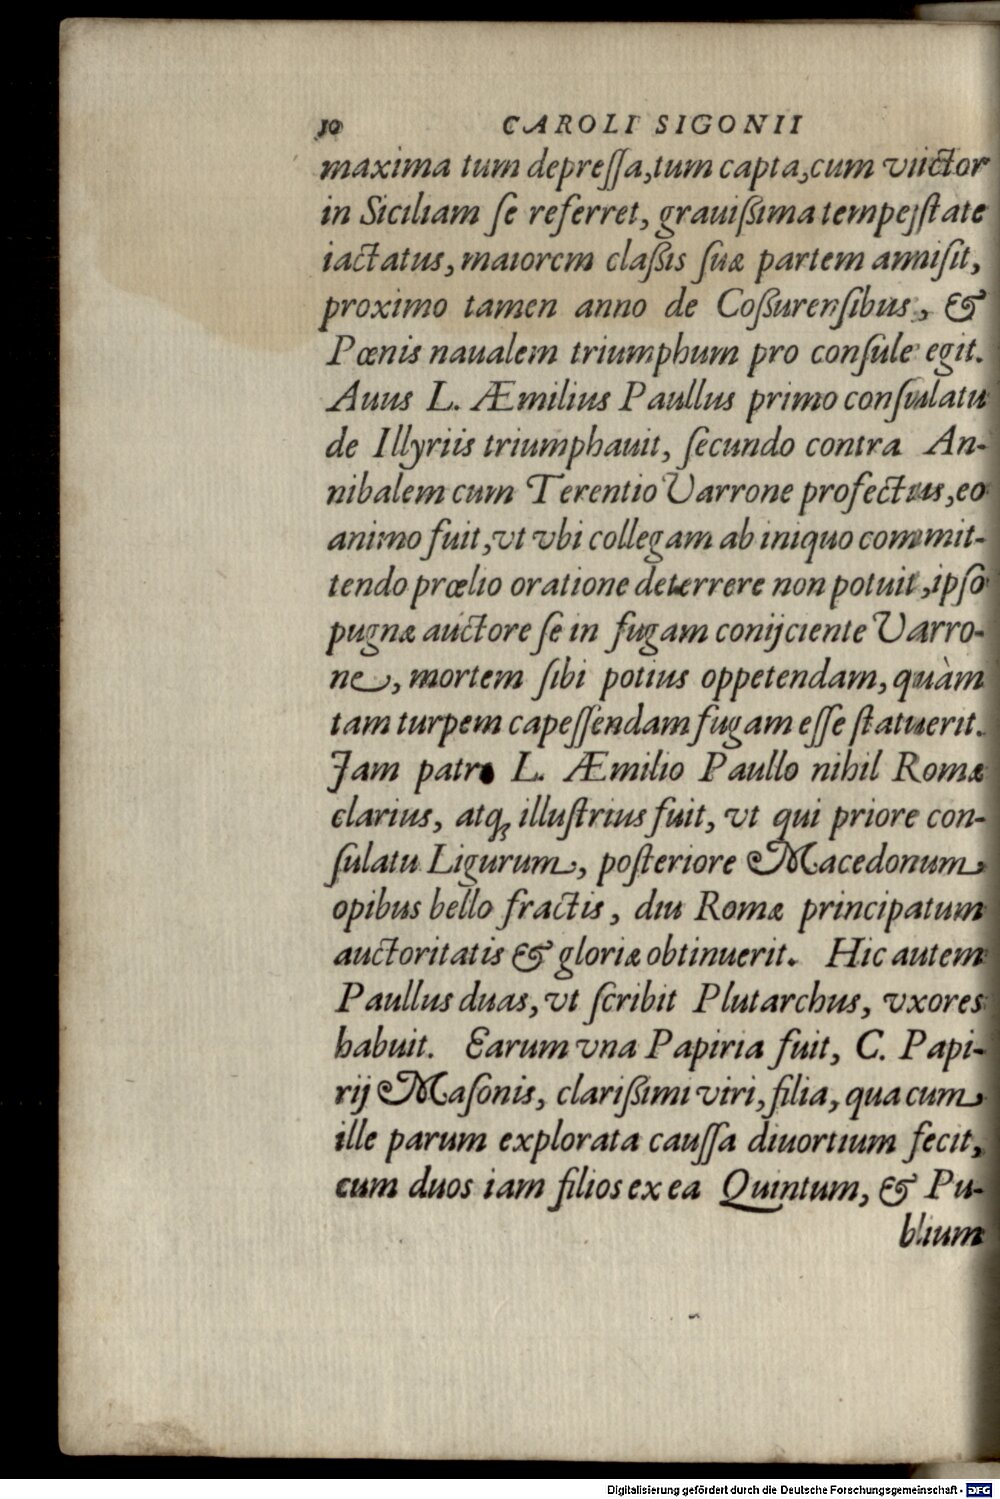 10 CAROLI SIGONII
maxima tum depreſſa, tum capta, cum victor
in Siciliam ſe referret, grauißima tempeſtate
iactatus, maiorem claßis ſuæ partem amiſit,
proximo tamen anno de Coßurenſibus, &
Pœnis naualem triumphum pro conſule egit.
Auus L. Æmilius Paullus primo conſulatu
de Illyriis triumphauit, ſecundo contra An-
nibalem cum Terentio Varrone profectus, eo
animo fuit, vt vbi collegam ab iniquo commit-
tendo prœlio oratione deterrere non potuit, ipſo
pugnæ auctore ſe in fugam conijciente Varro-
ne, mortem ſibi potius oppetendam, quàm
tam turpem capeſſendam fugam eſſe ſtatuerit.
Jam patre L. Æmilio Paullo nihil Romæ
clarius, atq; illuſtrius fuit, vt qui priore con-
ſulatu Ligurum, poſteriore Macedonum
opibus bello fractis, diu Romæ principatum
auctoritatis & gloriæ obtinuerit. Hic autem
Paullus duas, vt ſcribit Plutarchus, vxores
habuit. Earum vna Papiria fuit, C. Papi-
rij Maſonis, clarißimi viri, filia, qua cum
ille parum explorata cauſſa diuortium fecit,
cum duos iam filios ex ea Quintum, & Pu-
blium
Digitalisierung gefördert durch die Deutsche Forschungsgemeinschaft - DFG